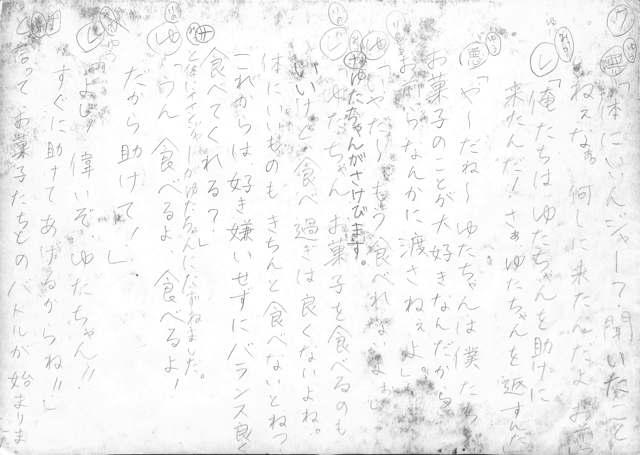 「体にいいんジャー？聞いたこと
ねぇなぁ 何しに来たんだよ お前ら」
「俺たちは ゆたちゃんを助けに
来たんだ！さぁ ゆたちゃんを返すんだ」
「や～だね～ ゆたちゃんは僕たち
お菓子のことが大好きなんだから
お前らなんかに渡さねぇよ」
「いやだ～ もう食べれないよぉ」
ゆたちゃんがさけびます。
「ゆたちゃん お菓子を食べるのも
いいけど 食べ過ぎは良くないよね。
体にいいものも きちんと食べないとねっ
これからは 好き嫌いせずにバランス良く
食べてくれる？」
と体にいいんジャーがゆたちゃんにたずねました。
「うん 食べるよ 食べるよ！
だから助けて！」
「よしっ 偉いぞ ゆたちゃん!!
すぐに助けてあげるからね!!」
と言って お菓子たちとのバトルが始まりま